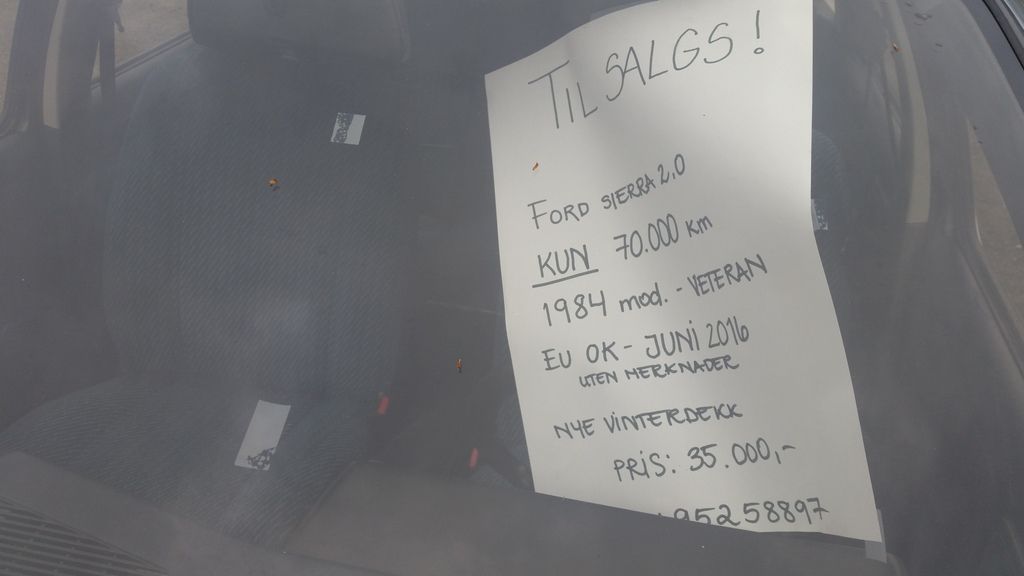 TIL SALGS!
FORD SIERRA 2.0
KUN 70.000 km
1984 mod. - VETERAN
EU OK - JUNI 2016
UTEN MERKNADER
NYE VINTERDEKK
PRIS: 35.000,-
95258897